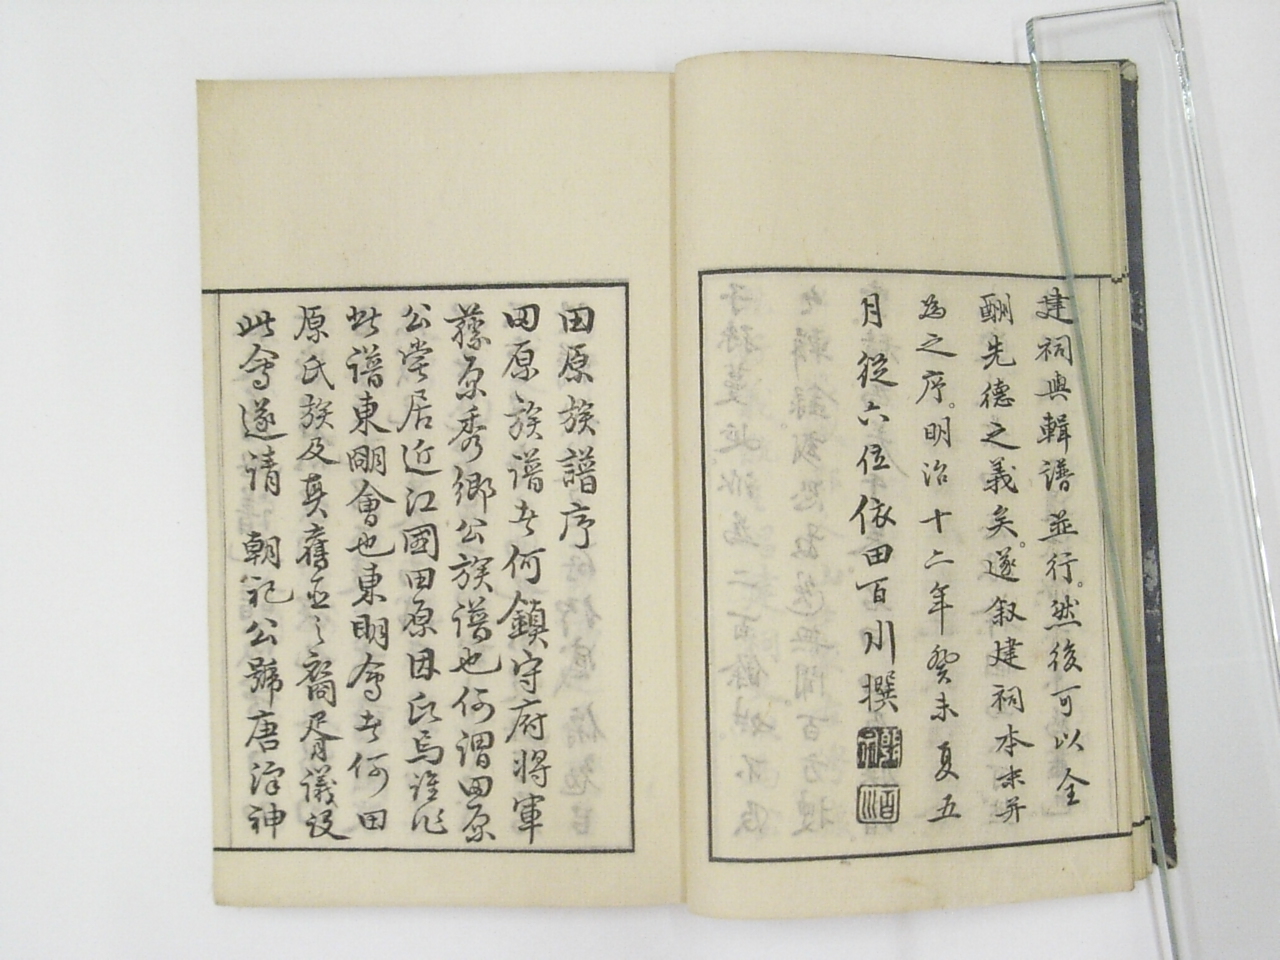 建祠與輯譜並行。然後可以全
酬先德之義矣。遂叙建祠本末并
為之序。明治十二年癸未夏五
月 從六位依田百川撰
百川
田原族譜序
田原族譜者何鎮守府将軍
藤原秀郷公族譜也何謂田原
公嘗居近江國田原因氏焉誰作
此譜東明會也東明會者何田
原氏族及其舊臣之裔胥議設
此會遂請 朝祀公號唐澤神